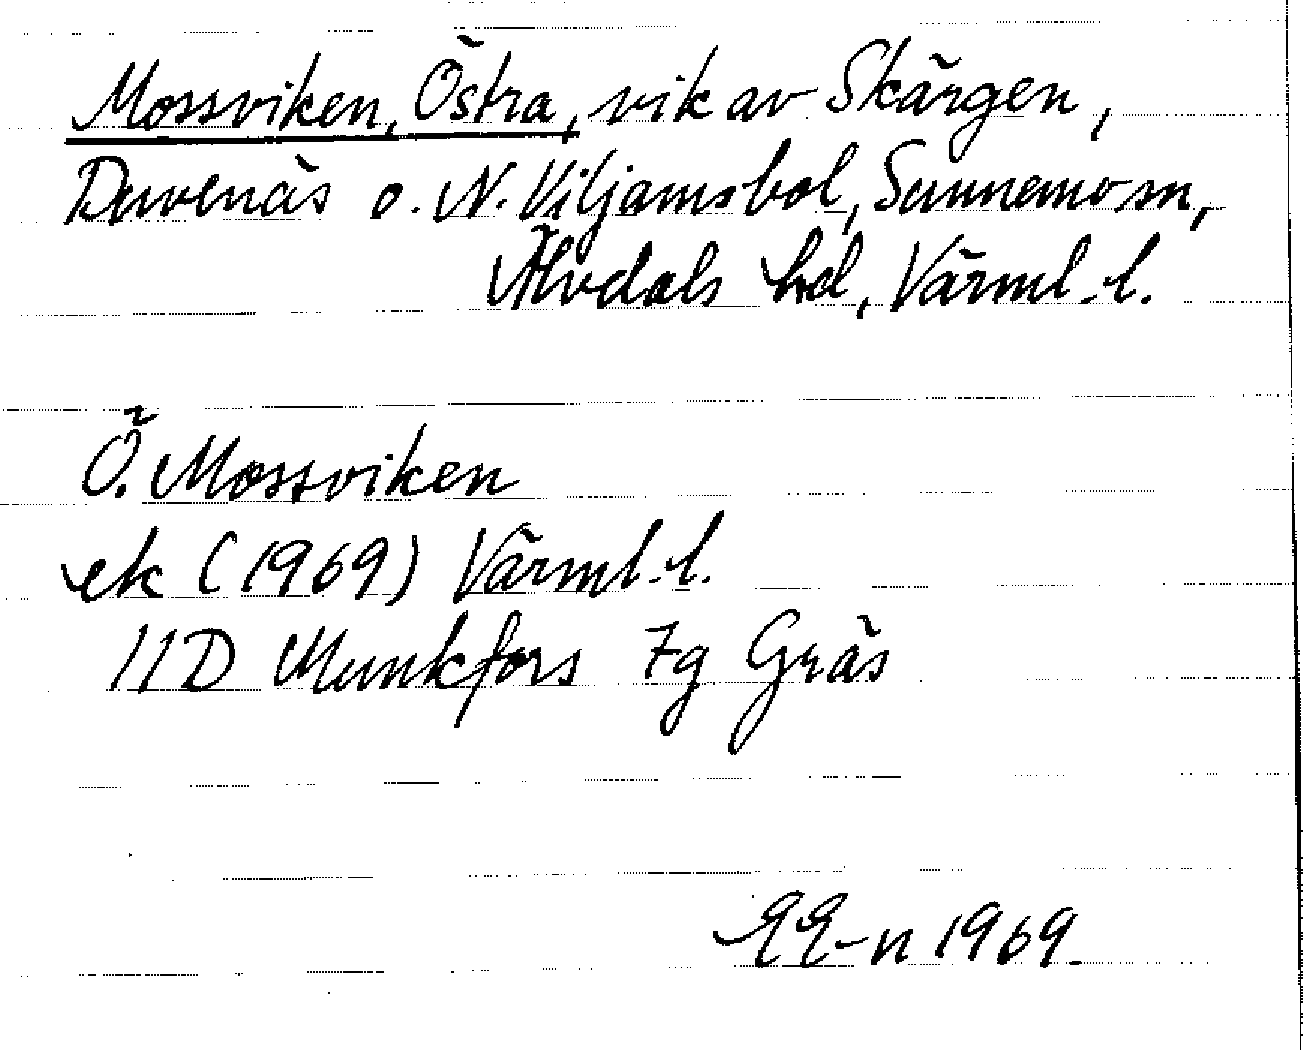 Mossviken, Östra, vik av Skärgen,
Duvenäs o. N. Viljamsbol, Sunnemo sn,
Älvdals hd, Värml. l.
Ö. Mossviken
ek (1969) Värml. l.
11D Munkfors 7g Gräs
1969.